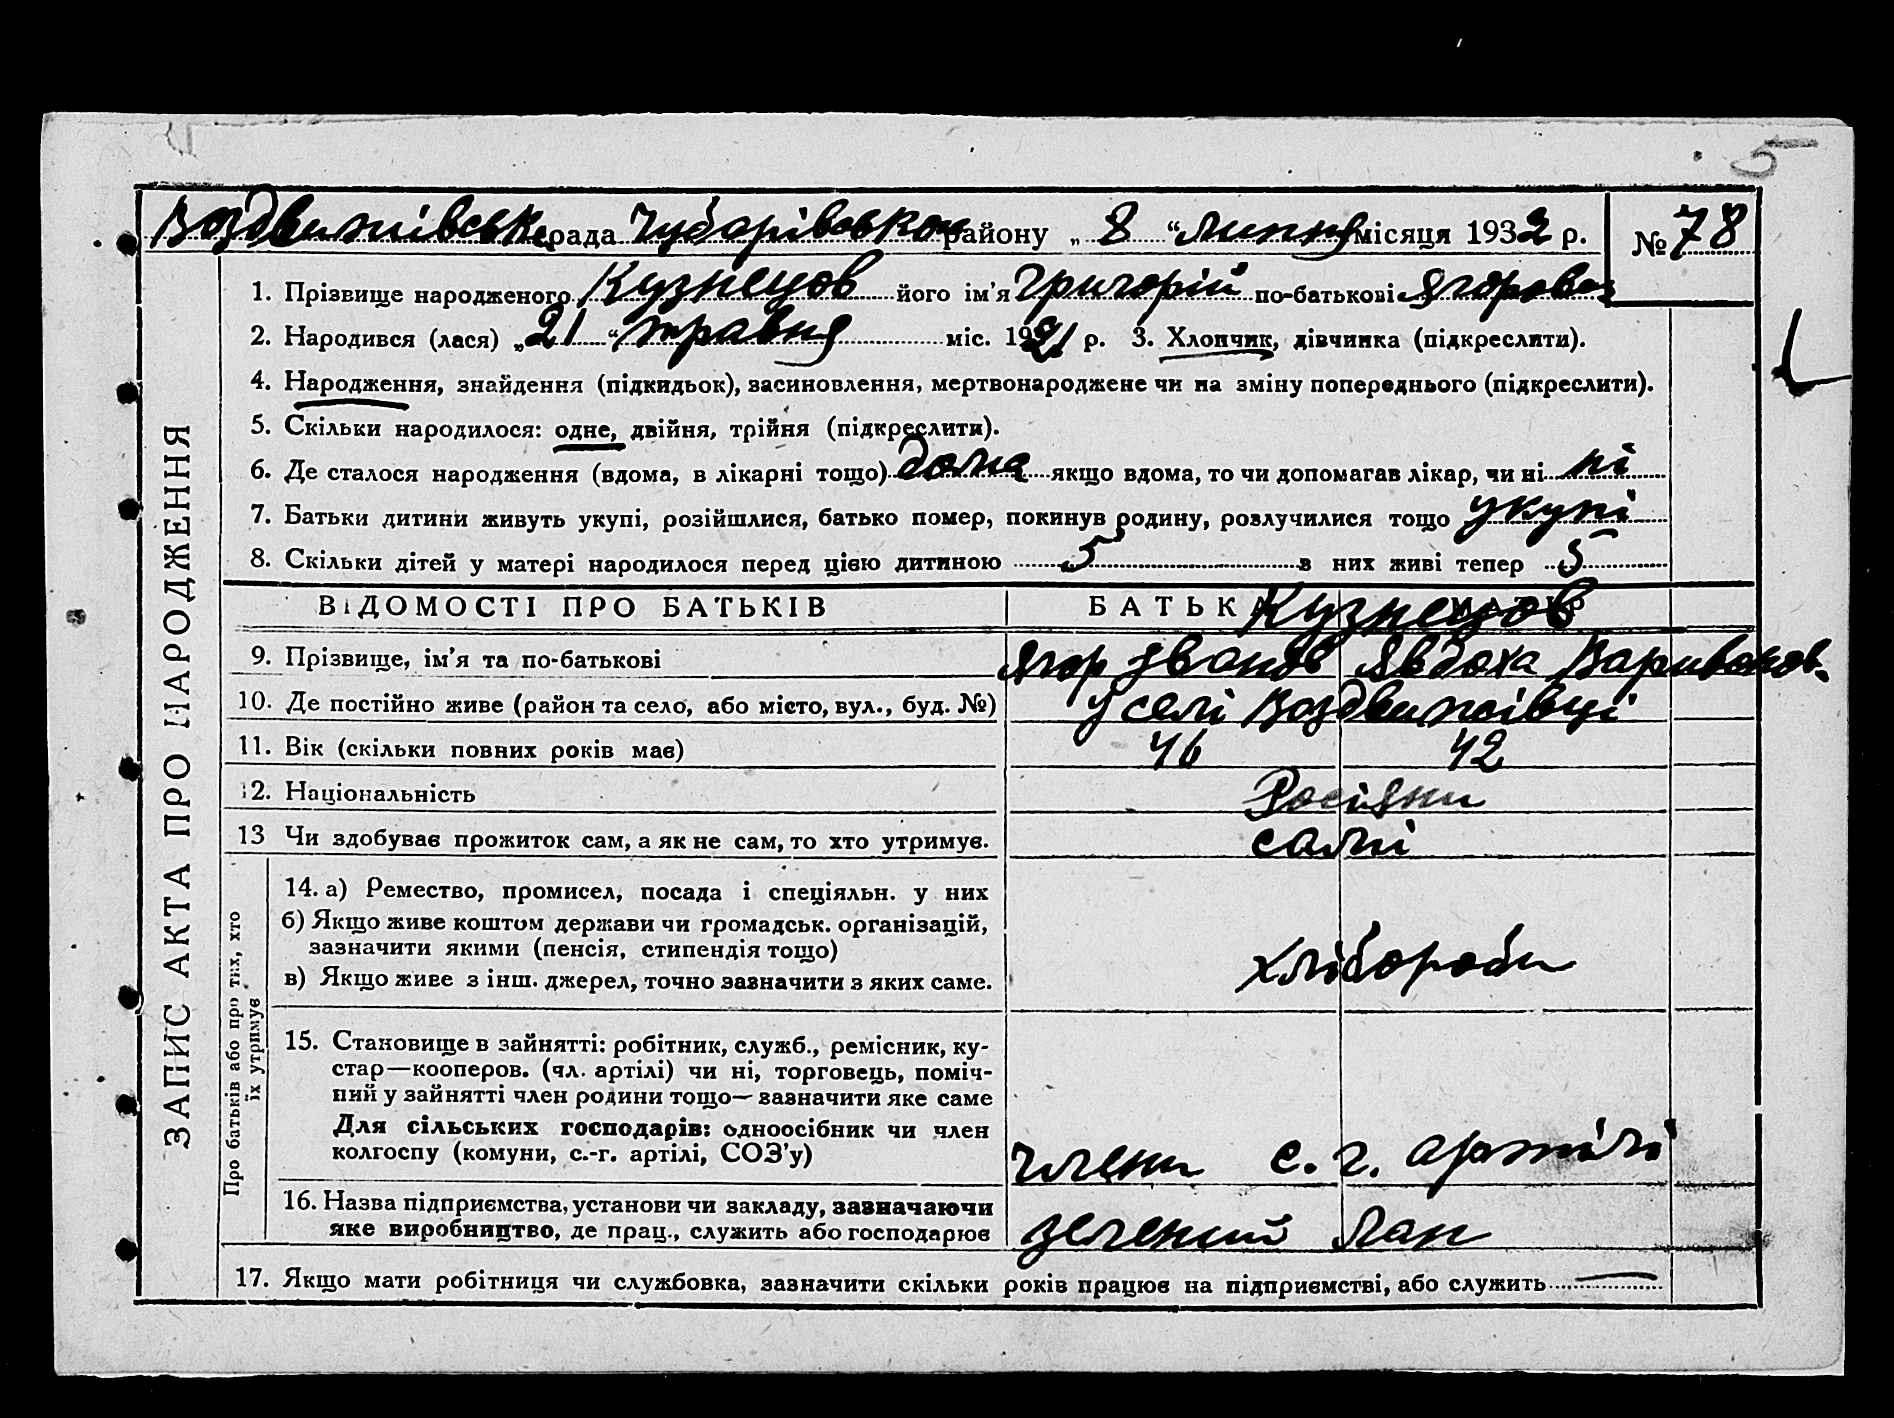 5
Воздвижівська рада Чубарівського району „ 8 “ липня місяця 1932 р. № 78
1. Прізвище народженого Кузнецов його ім’я Григорій по-батькові Ягоров
2. Народився (лася) „ 21 “ травня міс. 1921 р. 3. Хлопчик, дівчинка (підкреслити).
4. Народження, знайдення (підкидьок), засиновлення, мертвонароджене чи на зміну попереднього (підкреслити).
5. Скільки народилося: одне, двійня, трійня (підкреслити).
6. Де сталося народження (вдома, в лікарні тощо) дома якщо вдома, то чи допомагав лікар, чи ні ні
7. Батьки дитини живуть укупі, розійшлися, батько помер, покинув родину, розлучилися тощо укупі
8. Скільки дітей у матері народилося перед цією дитиною 5 в них живі тепер 5
ВІДОМОСТІ ПРО БАТЬКІВ БАТЬКА Кузнецов
9. Прізвище, ім’я та по-батькові Ягор Іванов Явдоха
10. Де постійно живе (район та село, або місто, вул., буд. №) У селі Воздвижівці
11. Вік (скільки повних років має) 46 42
12. Національність Росіяни
13 Чи здобуває прожиток сам, а як не сам, то хто утримує. самі
14. а) Ремество, промисел, посада і спеціяльн. у них
б) Якщо живе коштом держави чи громадськ. організацій,
зазначити якими (пенсія, стипендія тощо) хлібороби
в) Якщо живе з інш. джерел, точно зазначити з яких саме.
15. Становище в зайнятті: робітник, служб., ремісник, ку-
стар—кооперов. (чл. артілі) чи ні, торговець, поміч-
ний у зайнятті член родини тощо— зазначити яке саме
Для сільських господарів: одноосібник чи член
колгоспу (комуни, с.-г. артілі, СОЗ’у) члени с. г. артілі
16. Назва підприємства, установи чи закладу, зазначаючи
яке виробництво, де прац., служить або господарює зелений лан
17. Якщо мати робітниця чи службовка, зазначити скільки років працює на підприємстві, або служить —
ЗАПИС АКТА ПРО НАРОДЖЕННЯ
Про батьків або про тих, хто
їх утримує